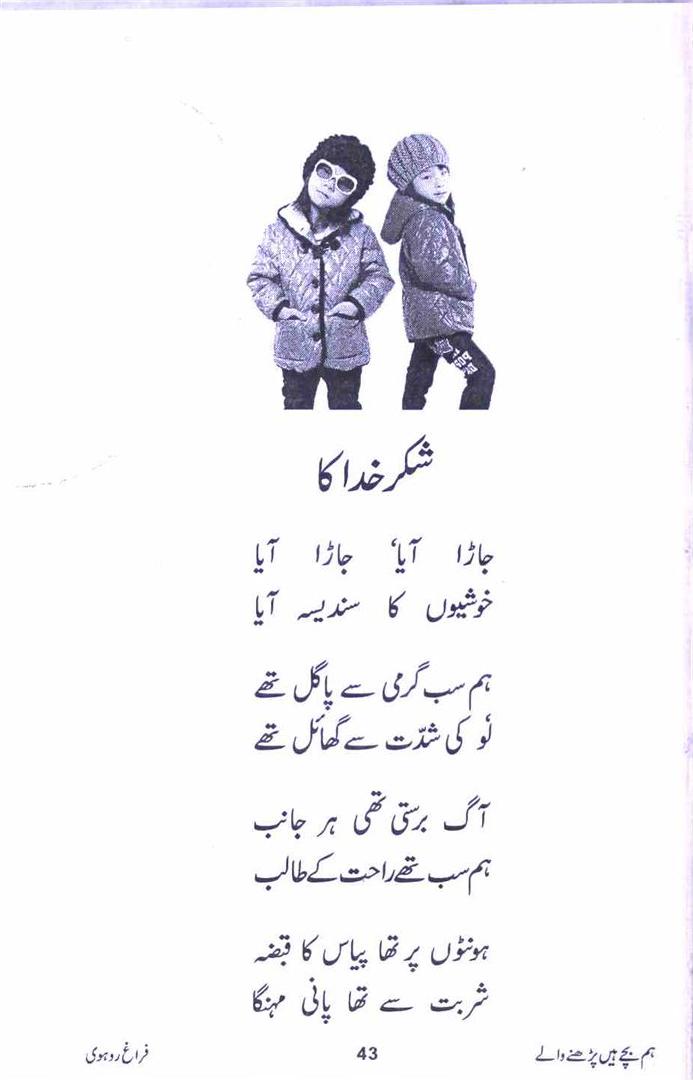 شکر خدا کا
جاڑا آیا، جاڑا آیا
خوشیوں کا سندیسہ آیا
ہم سب گرمی سے پاگل تھے
لُو کی شدّت سے گھائل تھے
آگ برستی تھی ہر جانب
ہم سب تھے راحت کے طالب
ہونٹوں پر تھا پیاس کا قبضہ
شربت سے تھا پانی مہنگا
ہم بچے ہیں پڑھنے والے
43
فراغ روہوی